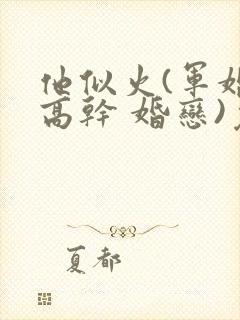 他似火(軍婚
高幹 婚戀)
夏都